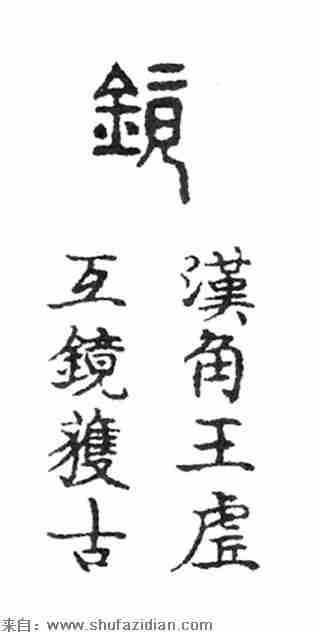 鏡
漢角王虛
互鏡蒦古
来自：www.shufazidian.com